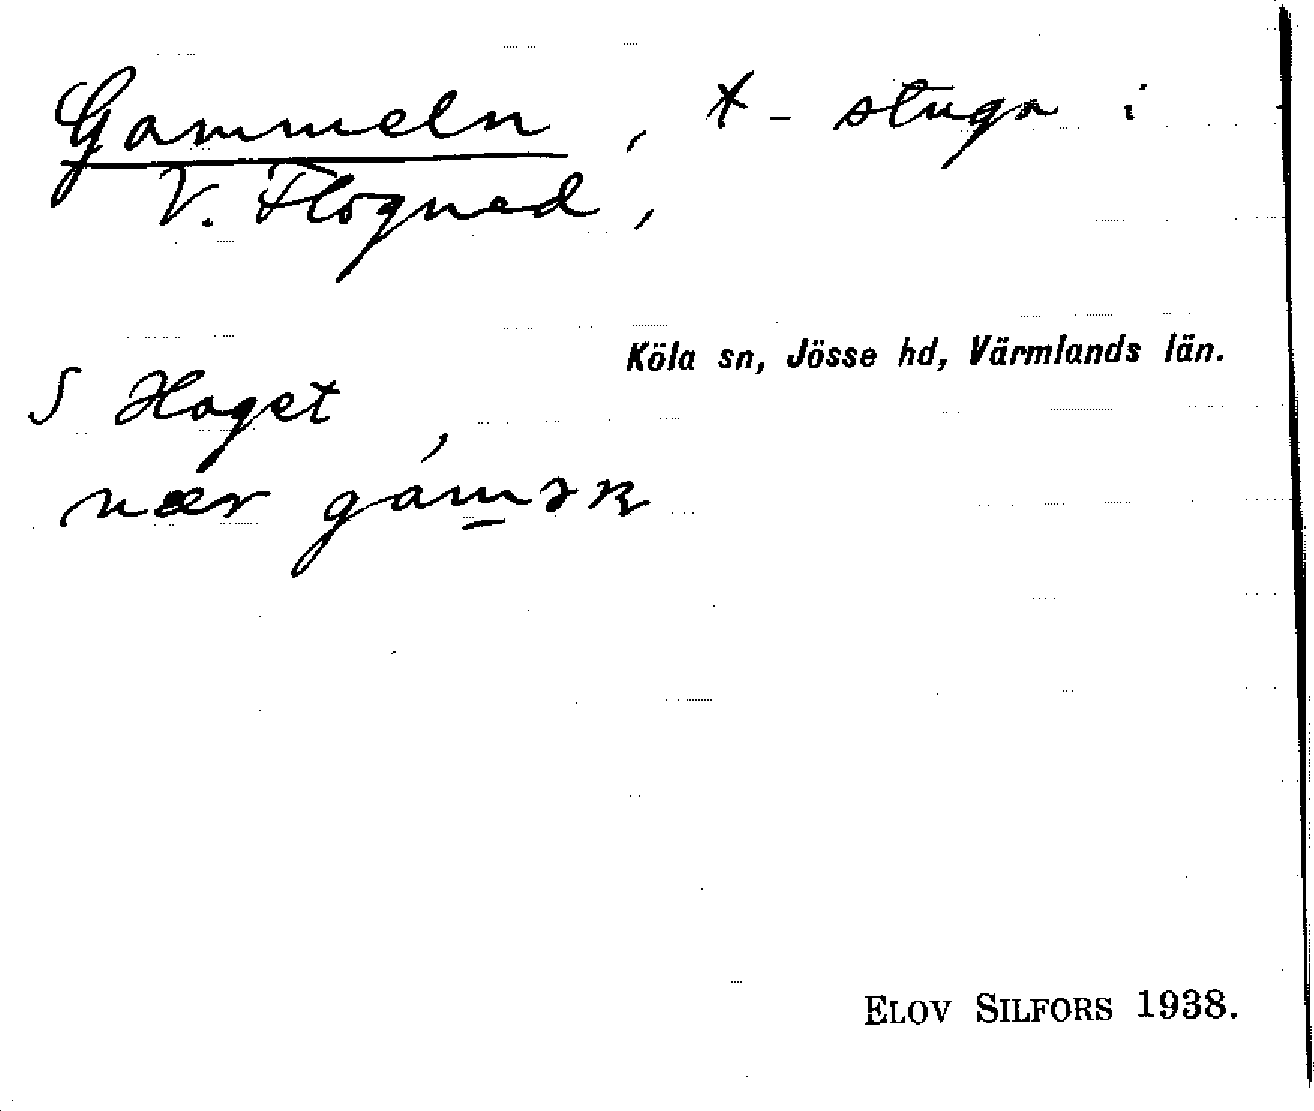 Gammeln, x- stuga i
V. Flogned,
Köla sn, Jösse hd, Värmlands län.
S Haget
nær
ELOV SILFORS 1938.